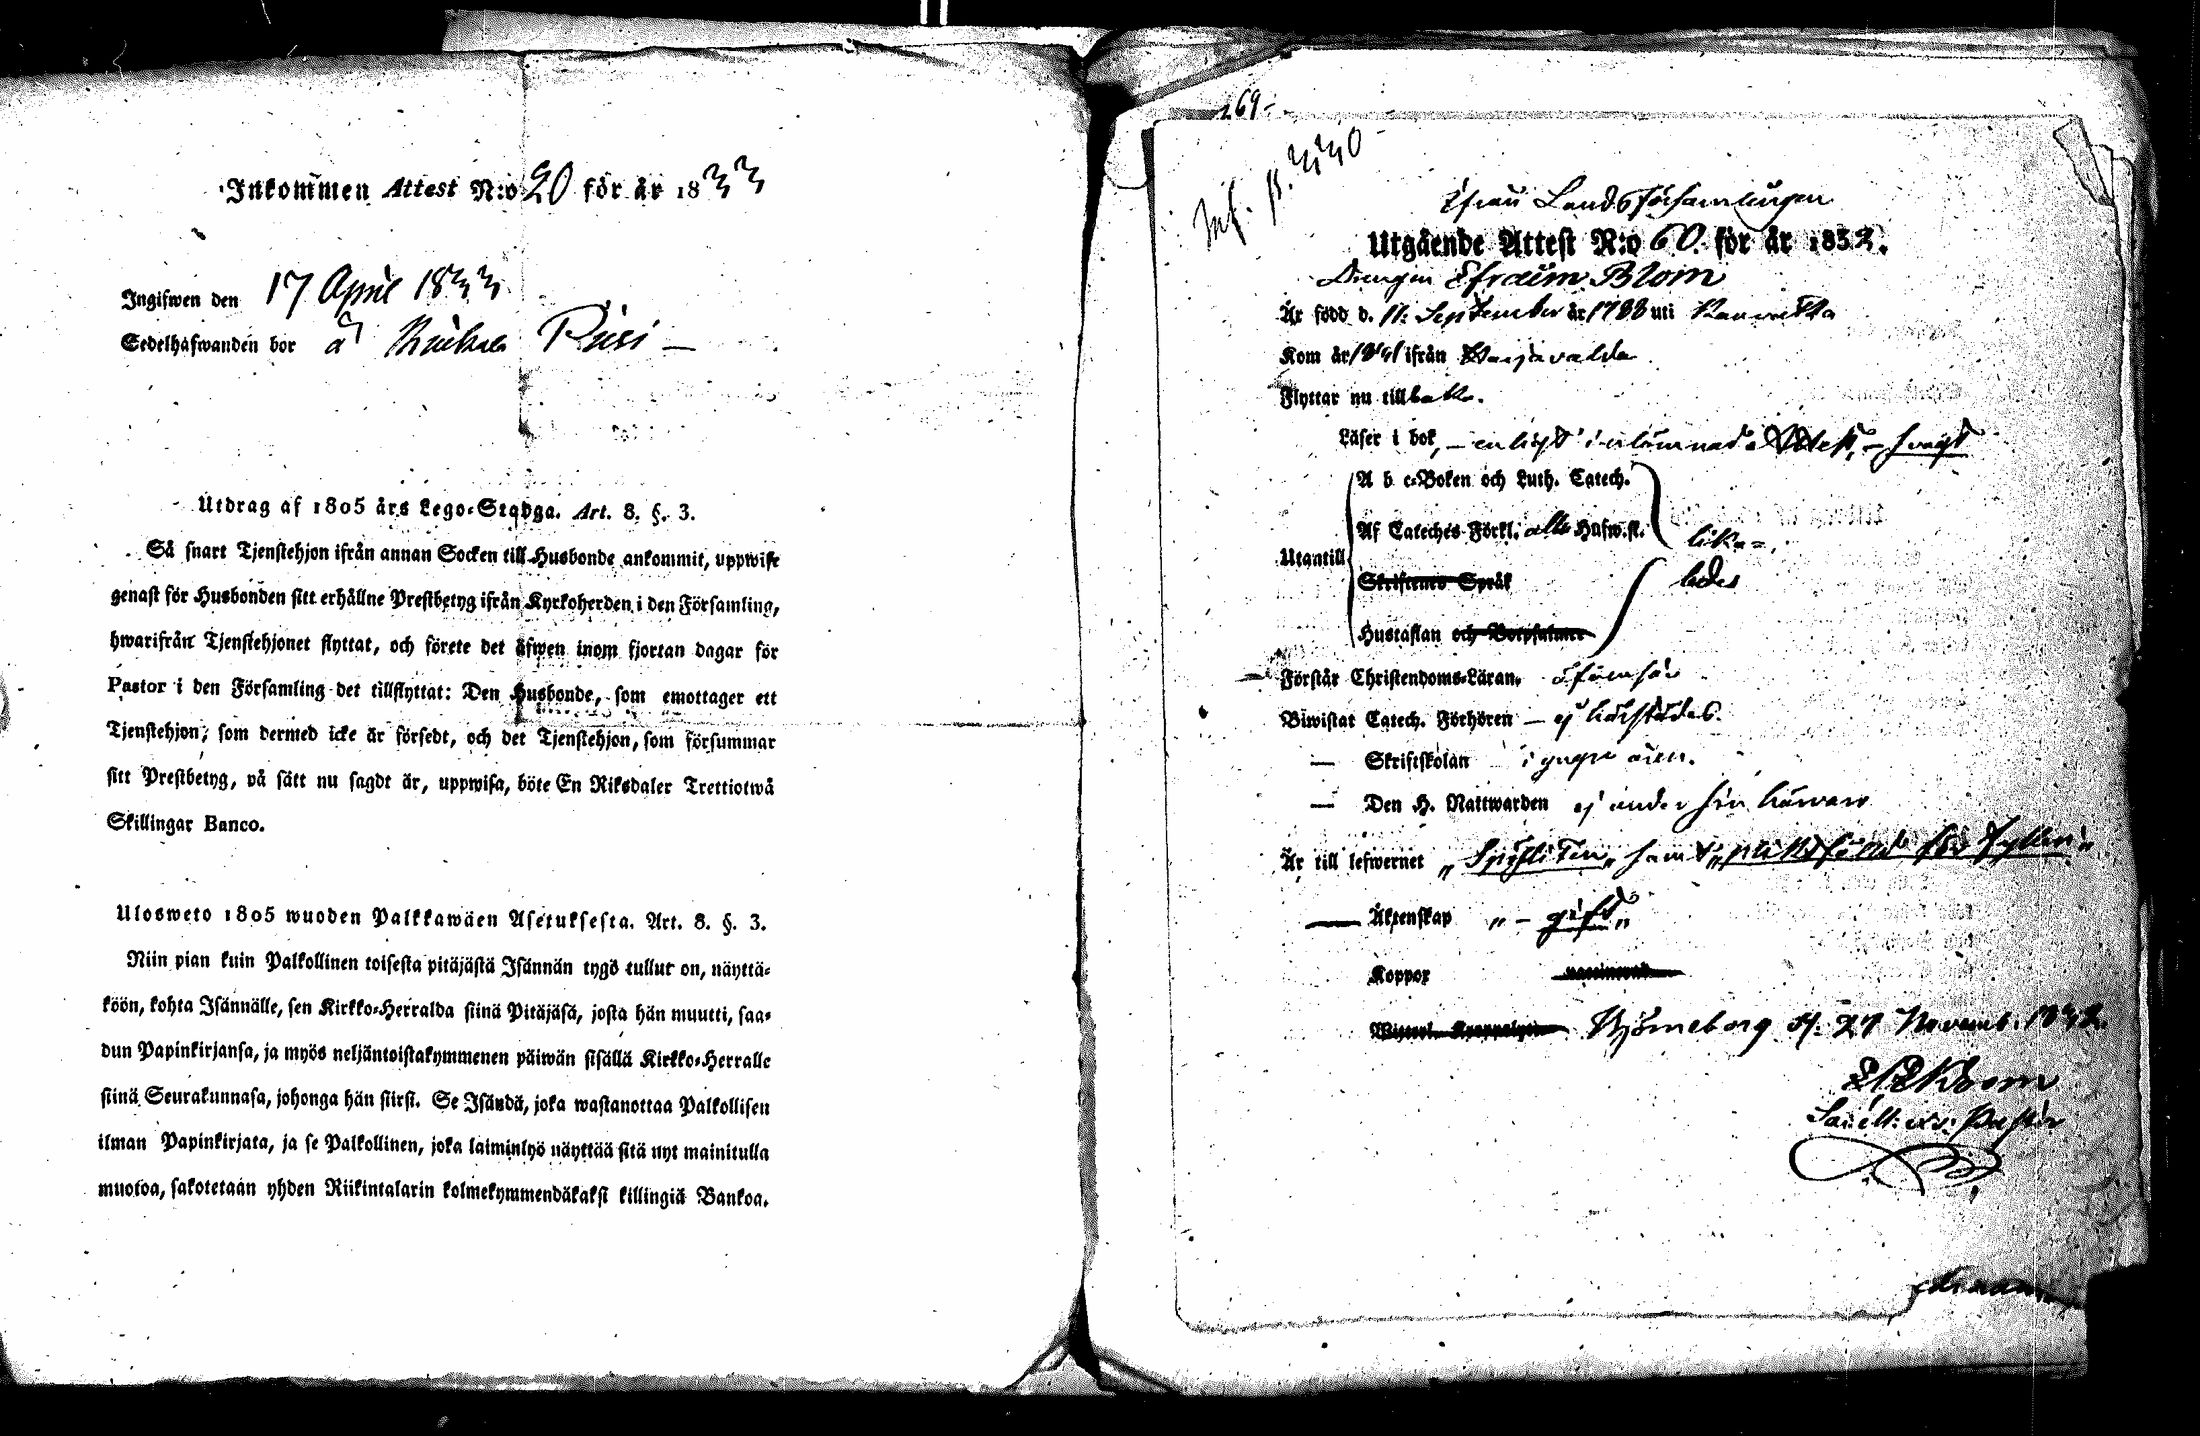 Inkommen Attest N:o 20 för år 1833
Ingifwen den 17 April 1833
Sedelhafwanden bor å
Utdrag af 1805 års Lego-Stadga. Art. 8. §. 3.
Så snart Tjenstehjon ifrån annan Socken till Husbonde ankommit, uppwise
genast för Husbonden sitt erhållne Prestbetyg ifrån Kyrkoherden i den Församling,
hwarifrån Tjenstehjonet flyttat, och förete det äfwen inom fjortan dagar för
Pastor i den Församling det tillflyttat: Den Husbonde, som emottager ett
Tjenstehjon, som dermed icke är försedt, och det Tjenstehjon, som försummar
sitt Prestbetyg, på sätt nu sagdt är, uppwisa, böte En Riksdaler Trettiotwå
Skillingar Banco.
Ulosweto 1805 wuoden Palkkawäen Asetuksesta. Art. 8. §. 3.
Niin pian kuin Palkollinen toisesta pitäjästä Isännän tygö tullut on, näyttä-
köön, kohta Isännälle, sen Kirkko-Herralda siinä Pitäjäsä, josta hän muutti, saa-
dun Papinkirjansa, ja myös neljäntoistakymmenen päiwän sisällä Kirkko-Herralle
siinä Seurakunnasa, johonga hän siirsi. Se Isändä, joka wastanottaa Palkollisen
ilman Papinkirjata, ja se Palkollinen, joka laiminlyö näyttää sitä nyt mainitulla
muotoa, sakotetaan yhden Riikintalarin kolmekymmendäkaksi killingiä Bankoa.
69
Inf. p. 340
Ifrån Landsförsamlingen
Utgående Attest N:o 60. för år 1832.
Drengen Efraim Blom
Är född d. 11: September år 1788 uti
Kom år ifrån Harjavalda
Flyttar nu tillbaka.
Läser i bok, – enligt inlemnad Attest, – svagt
Utantill
A b c-Boken och Luth. Catech.
Af Cateches Förkl. alla Hufw.st.
Skriftenes Språk
Hustaflan och Botpsalmer
lika=
ledes
Förstår Christendoms-Läran.
Biwistat Catech. Förhören – ej härstädes.
— Skriftskolan i yngre åren.
— Den H. Nattwarden ej under sin härvaro
Är till lefwernet samt för fylleri"
— Äktenskap "– gift"
Koppor vaccinerad
Björneborg d. 27 Novemb. 1832.